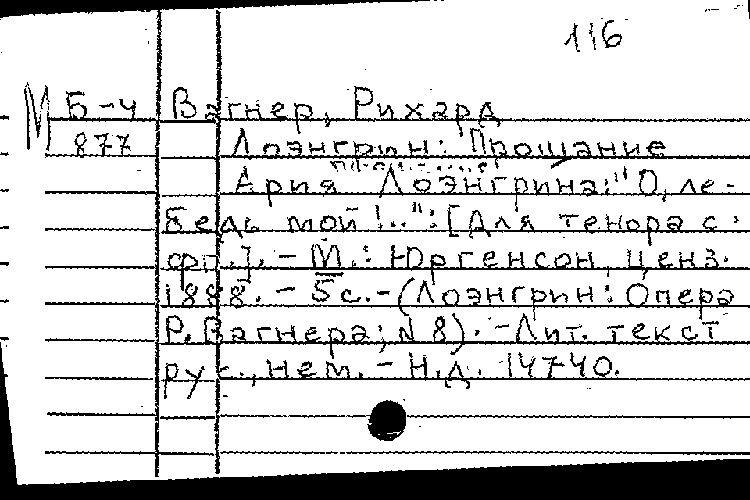 116
М Б-4 Вагнер, Рихард
877 Лоэнгрин: Прощание
Ария Лоэнгрина: "О, ле-
бедь мой!..": [Для тенора с
фп.]. - М.: Юргенсон, ценз.
1888. - 5с. - (Лоэнгрин: Опера
Р. Вагнера; № 8). - Лит. текст
рус., нем. - Н.д. 14740.